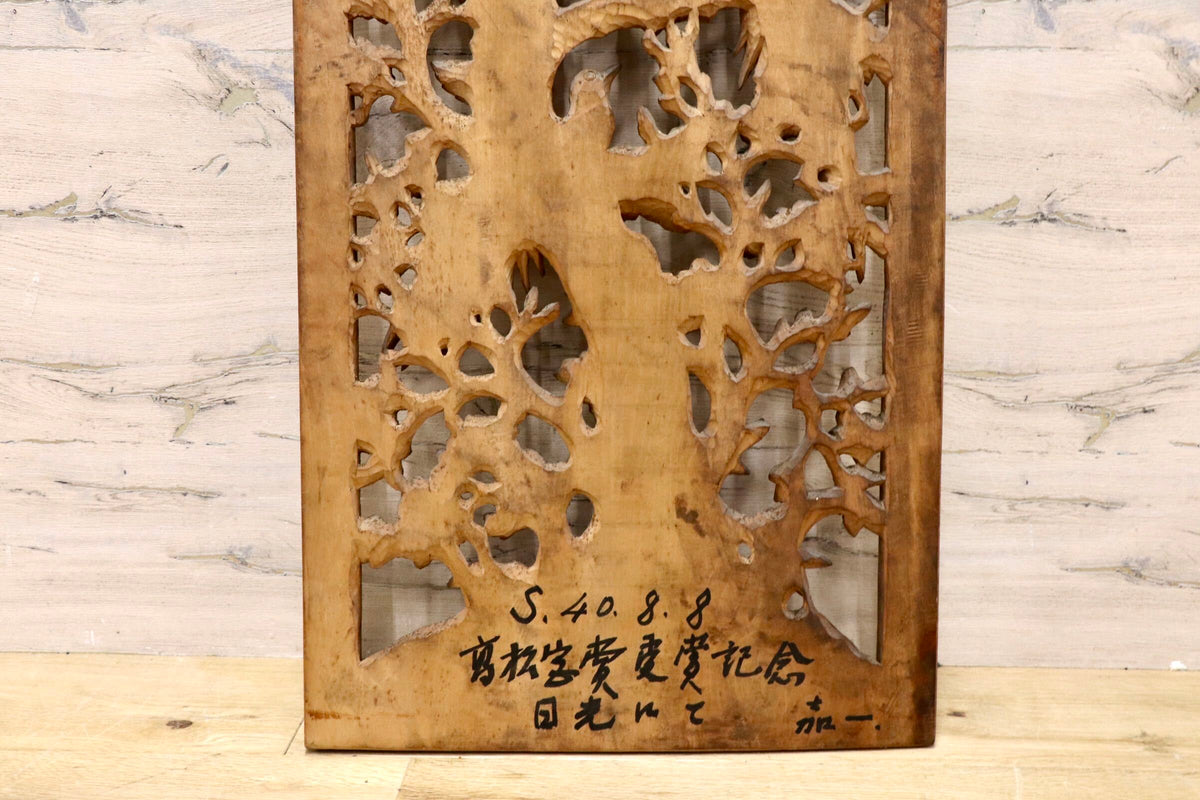 S.40.8.8
髙松宮賞受賞記念
日光にて 嘉一.